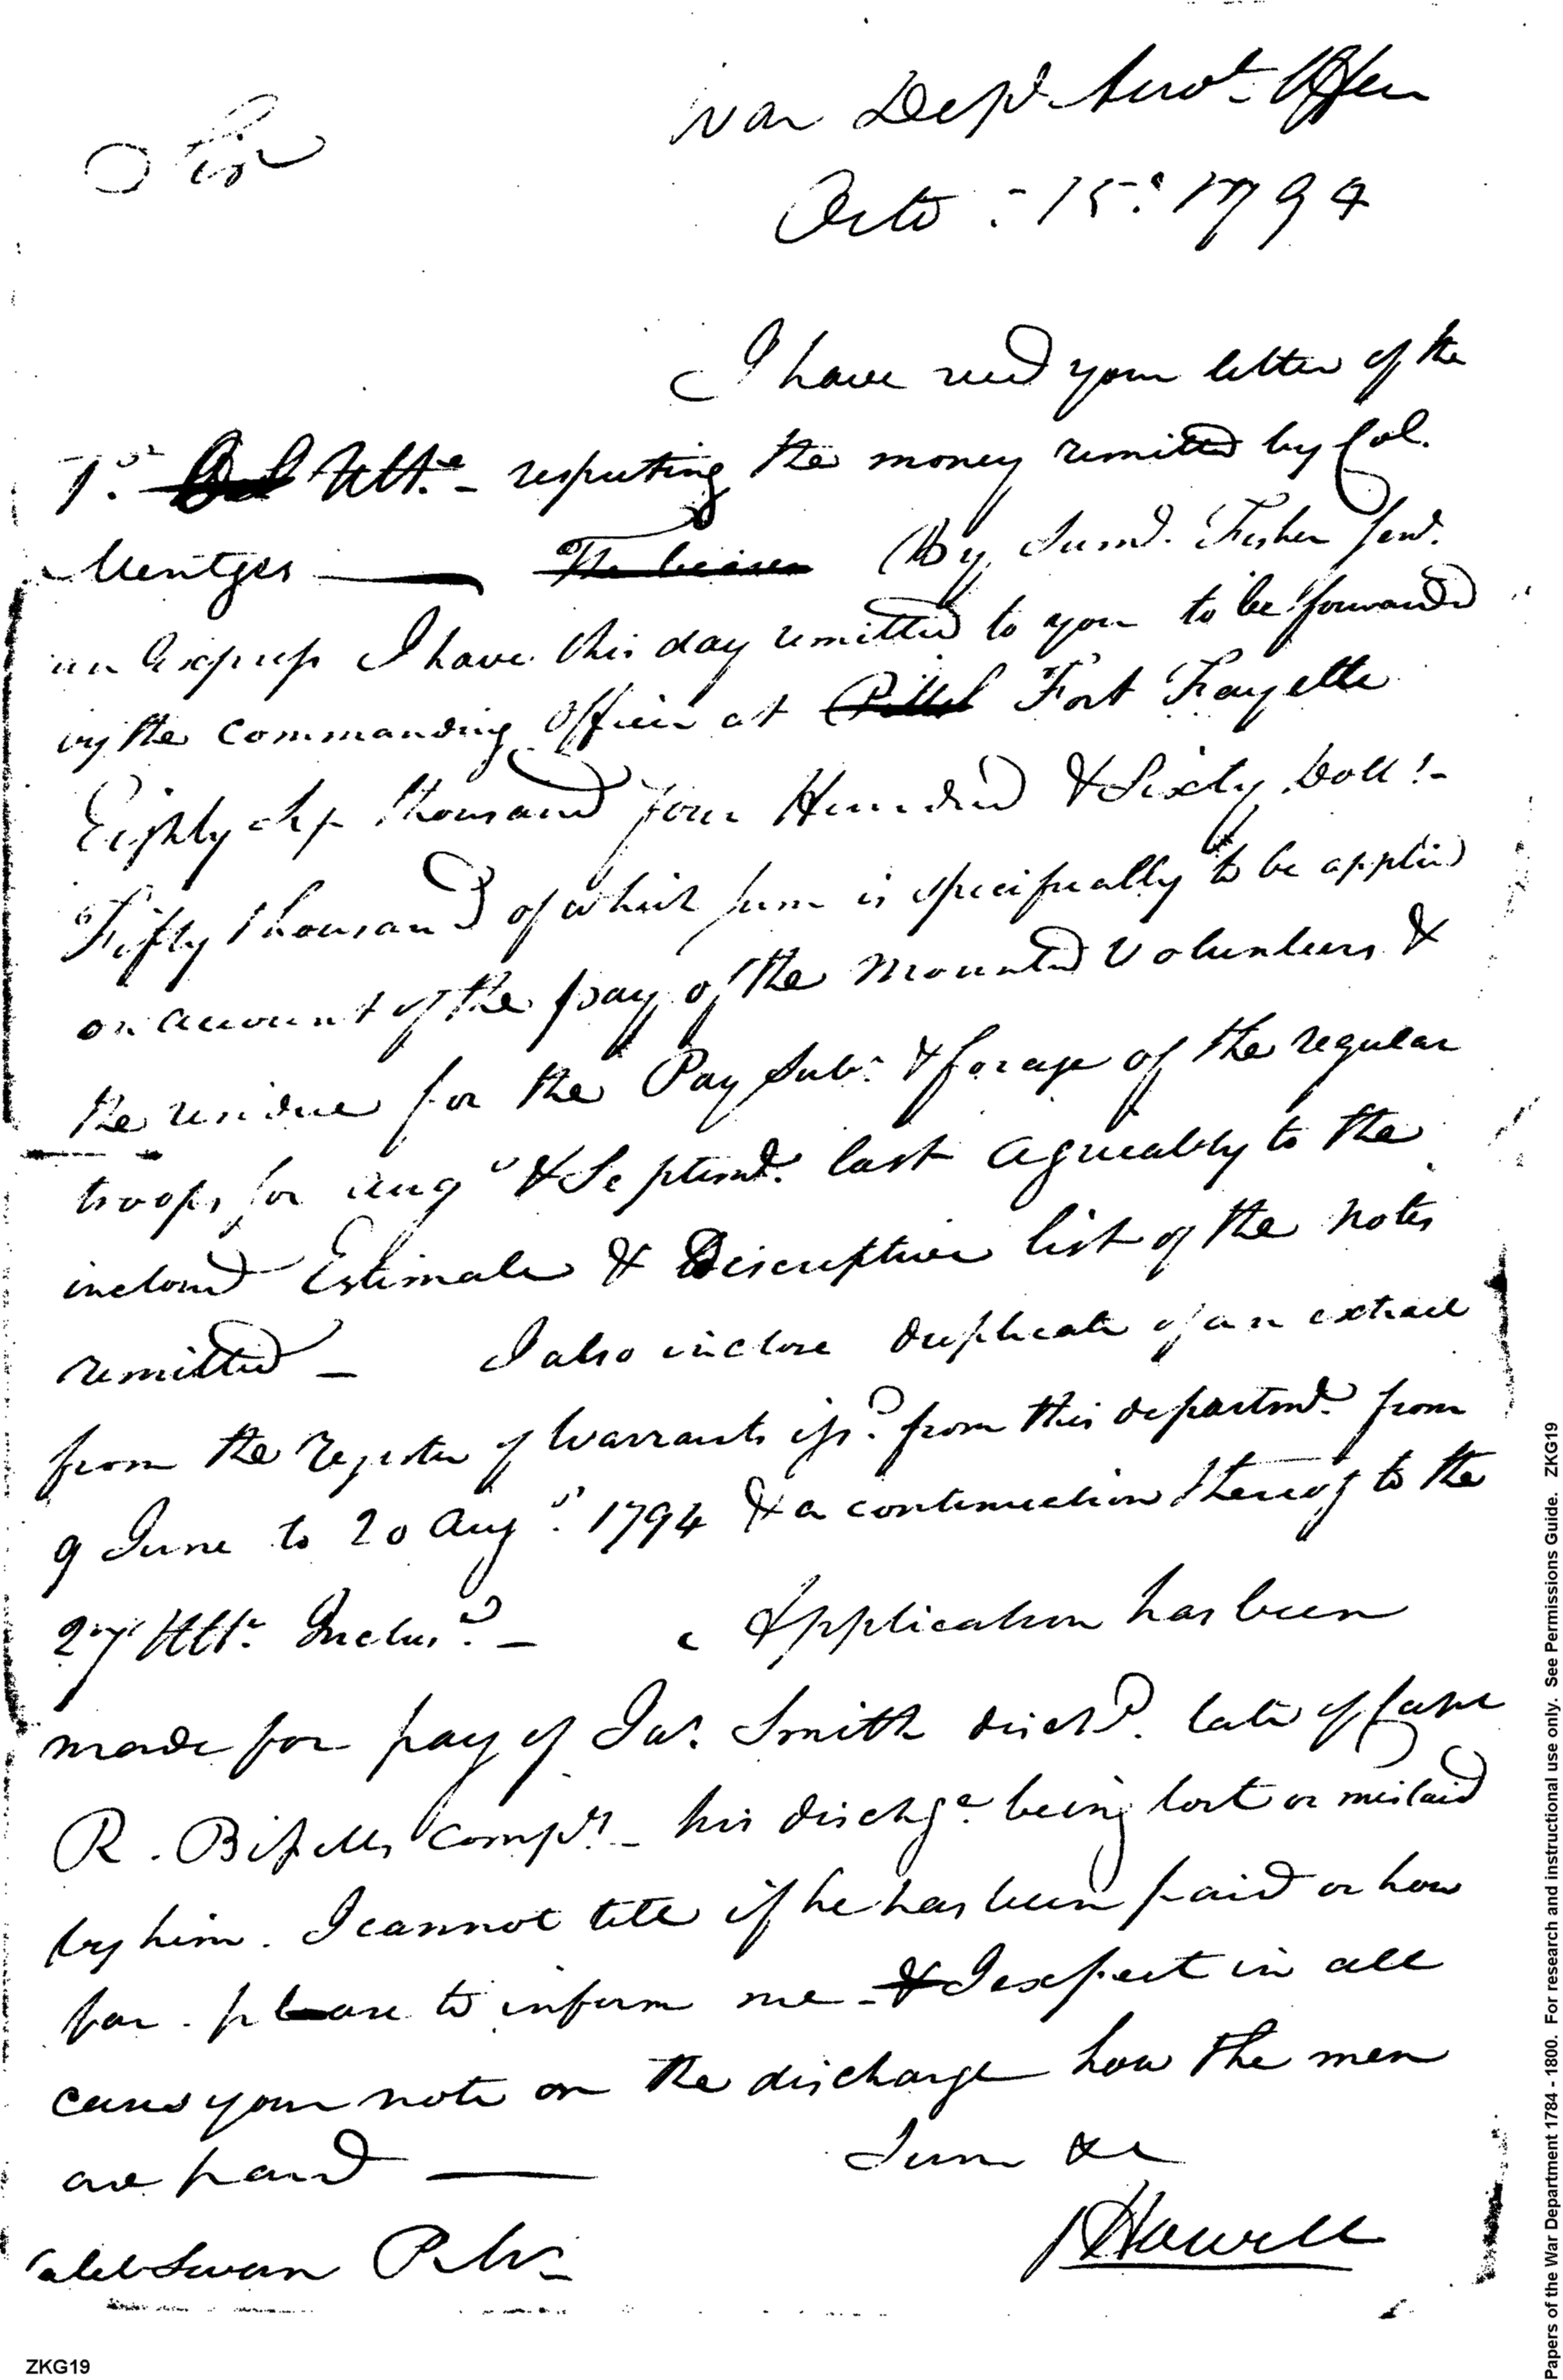 Sir
War Dept. Acct. Office
Octo: 15: 1794
I have recd your letter of the
1st. Ulto. - respecting the money remitted by Col.
Mentges — The (By Saml. Fisher Senr.
an Express I have this day remitted to you to be forwarded
by the Commanding Officer at Fort Fayette
Eighty six thousand four Hundred & Sixty Dolls. -
Fifty thousand of which sum is specifically to be applied
on account of the pay of the mounted Volunteers &
the residue for the Pay Subs. & forage of the regular
troops for Augt & Septemr. last agreeably to the
inclosed Estimate & Discriptive list of the notes
remitted — I also inclose duplicate of an extract
from the register of Warrants issd. from this departmt. from
9 June to 20 Augt. 1794 & a continuation thereof to the
27 Ulto. Inclusd. — Application has been
made for pay of Jas. Smith dischd. late of Capt
R. Bissells Compy. - his dischge. being lost or mislaid
by him. I cannot tell if he has been paid or how
far. please to inform me - & I expect in all
cases your note on the discharge how the men
are paid —
I am &c
J Howell
Caleb Swan P.Mr.
ZKG19
Papers of the War Department 1784 - 1800. For research and instructional use only. See Permissions Guide. ZKG19